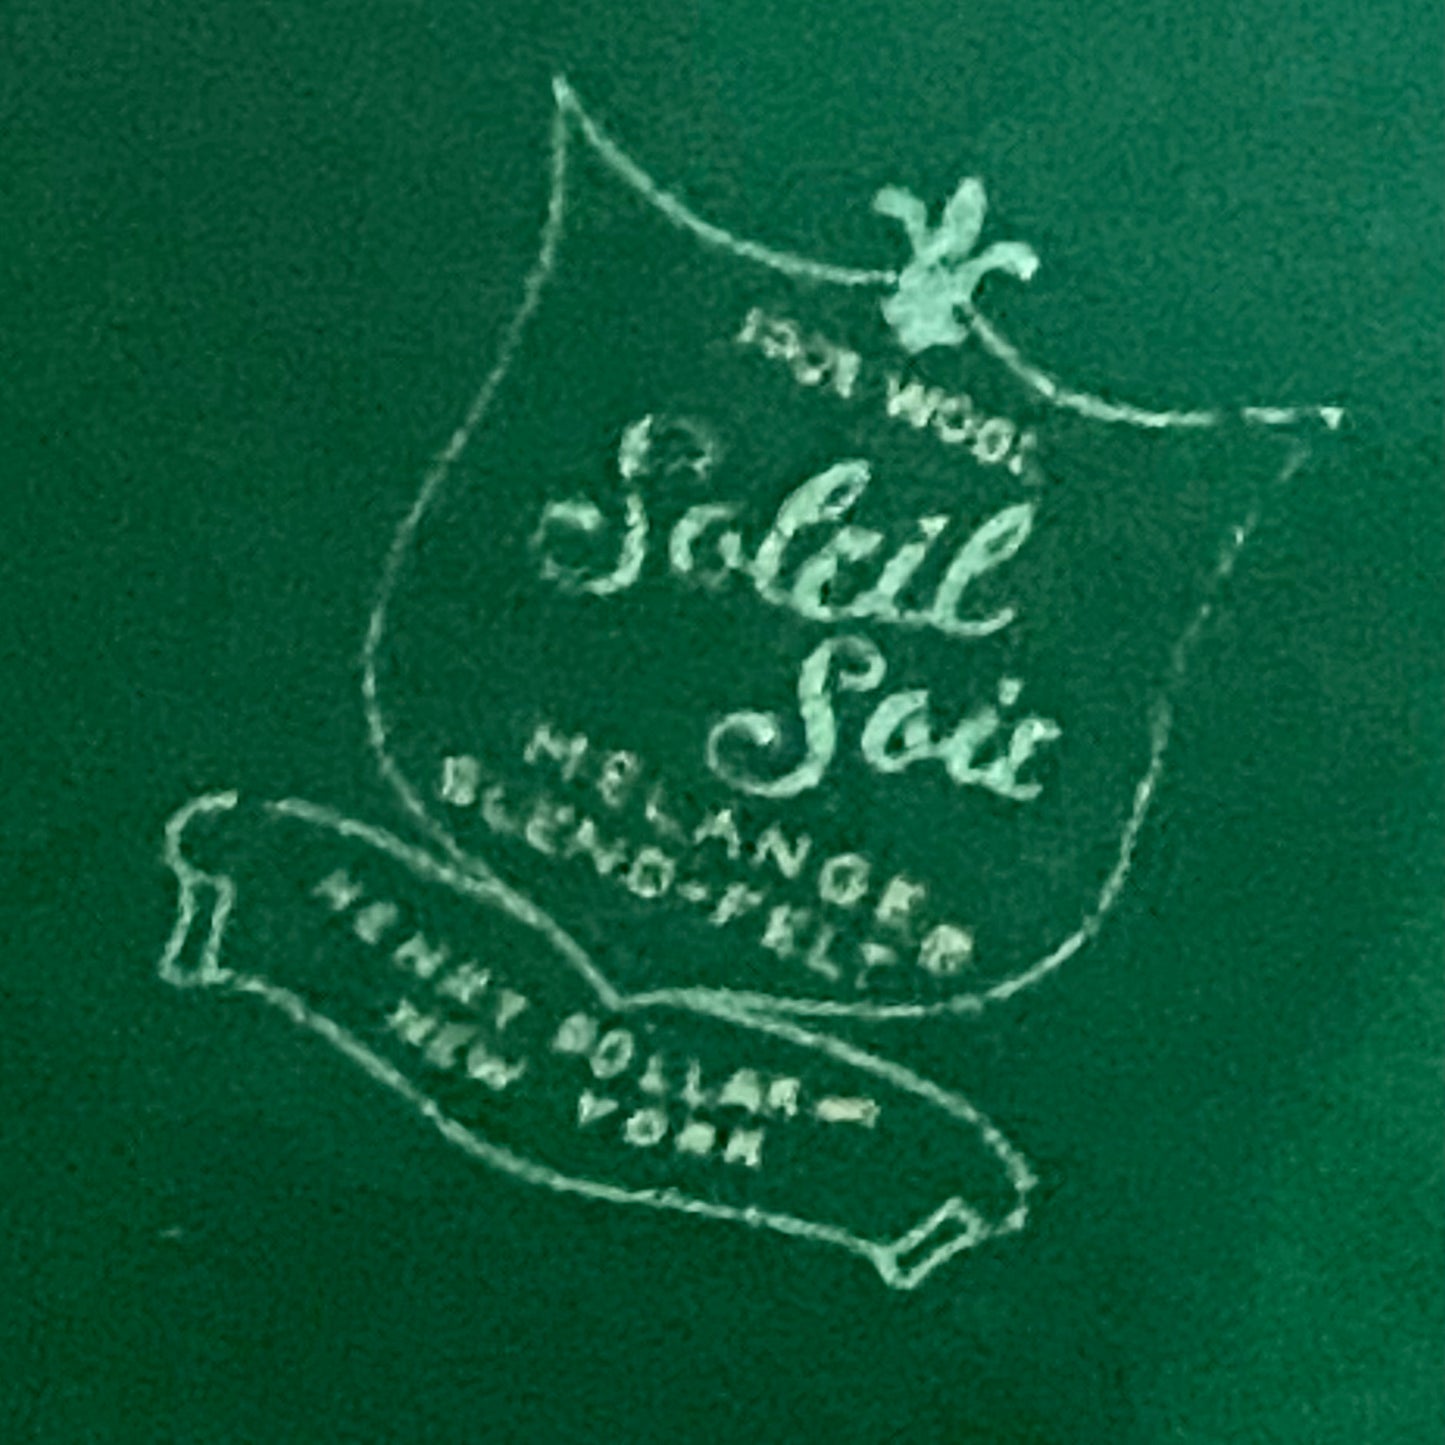 100% WOOL
Soleil
Soie
MELANGE
BLEND-FELT
HENRY POLLAK
NEW YORK